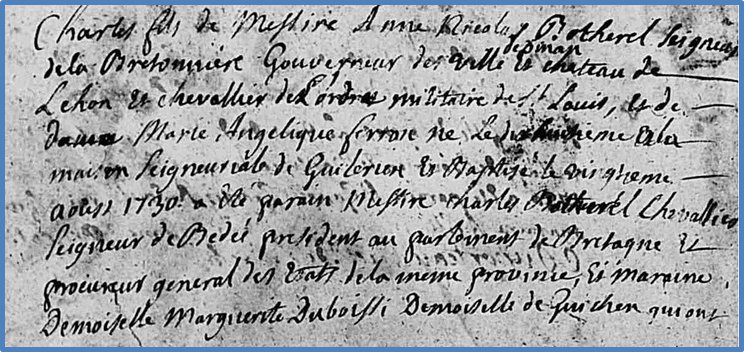 Charles fils de Messire Anne Nicolas Botherel Seigneur
de la Bretonniere Gouverneur des ville de dinan et chateau de
Lehon et chevallier de L'ordre militaire de St Louis, et de
dame Marie Angelique ferron ne Le dixhuitieme a la
maison Seigneuriale de et Baptisé le vingtieme
aoust 1730. a êté parain Messire Charles Botherel Chevallier
Seigneur de Bedeé president au parlement de Bretagne et
procureur general des etats de la meme province, et maraine
Demoiselle Marguerite Duboissi Demoiselle de Guichen qui ont